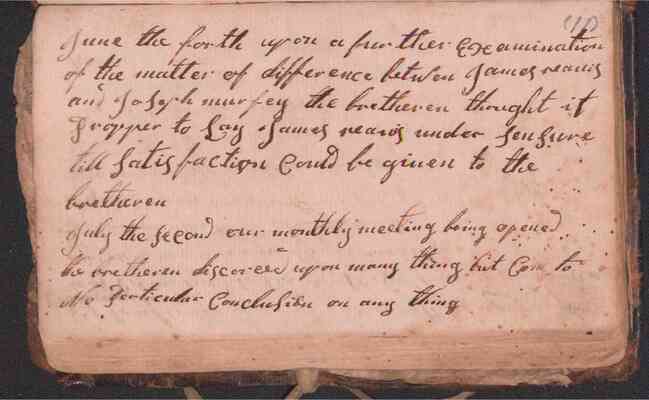 June the forth upon a further Examination
of the matter of difference betwen James nearis
and Joseph murfey the bretheren thought it
Propper to Lay James nearis under Sensure
till Satisfaction Could be given to the
bretheren
July the Second our monthly meeting being opened
the bretheren discorced upon many thing but Com to
No Perticular Conclusion on any thing